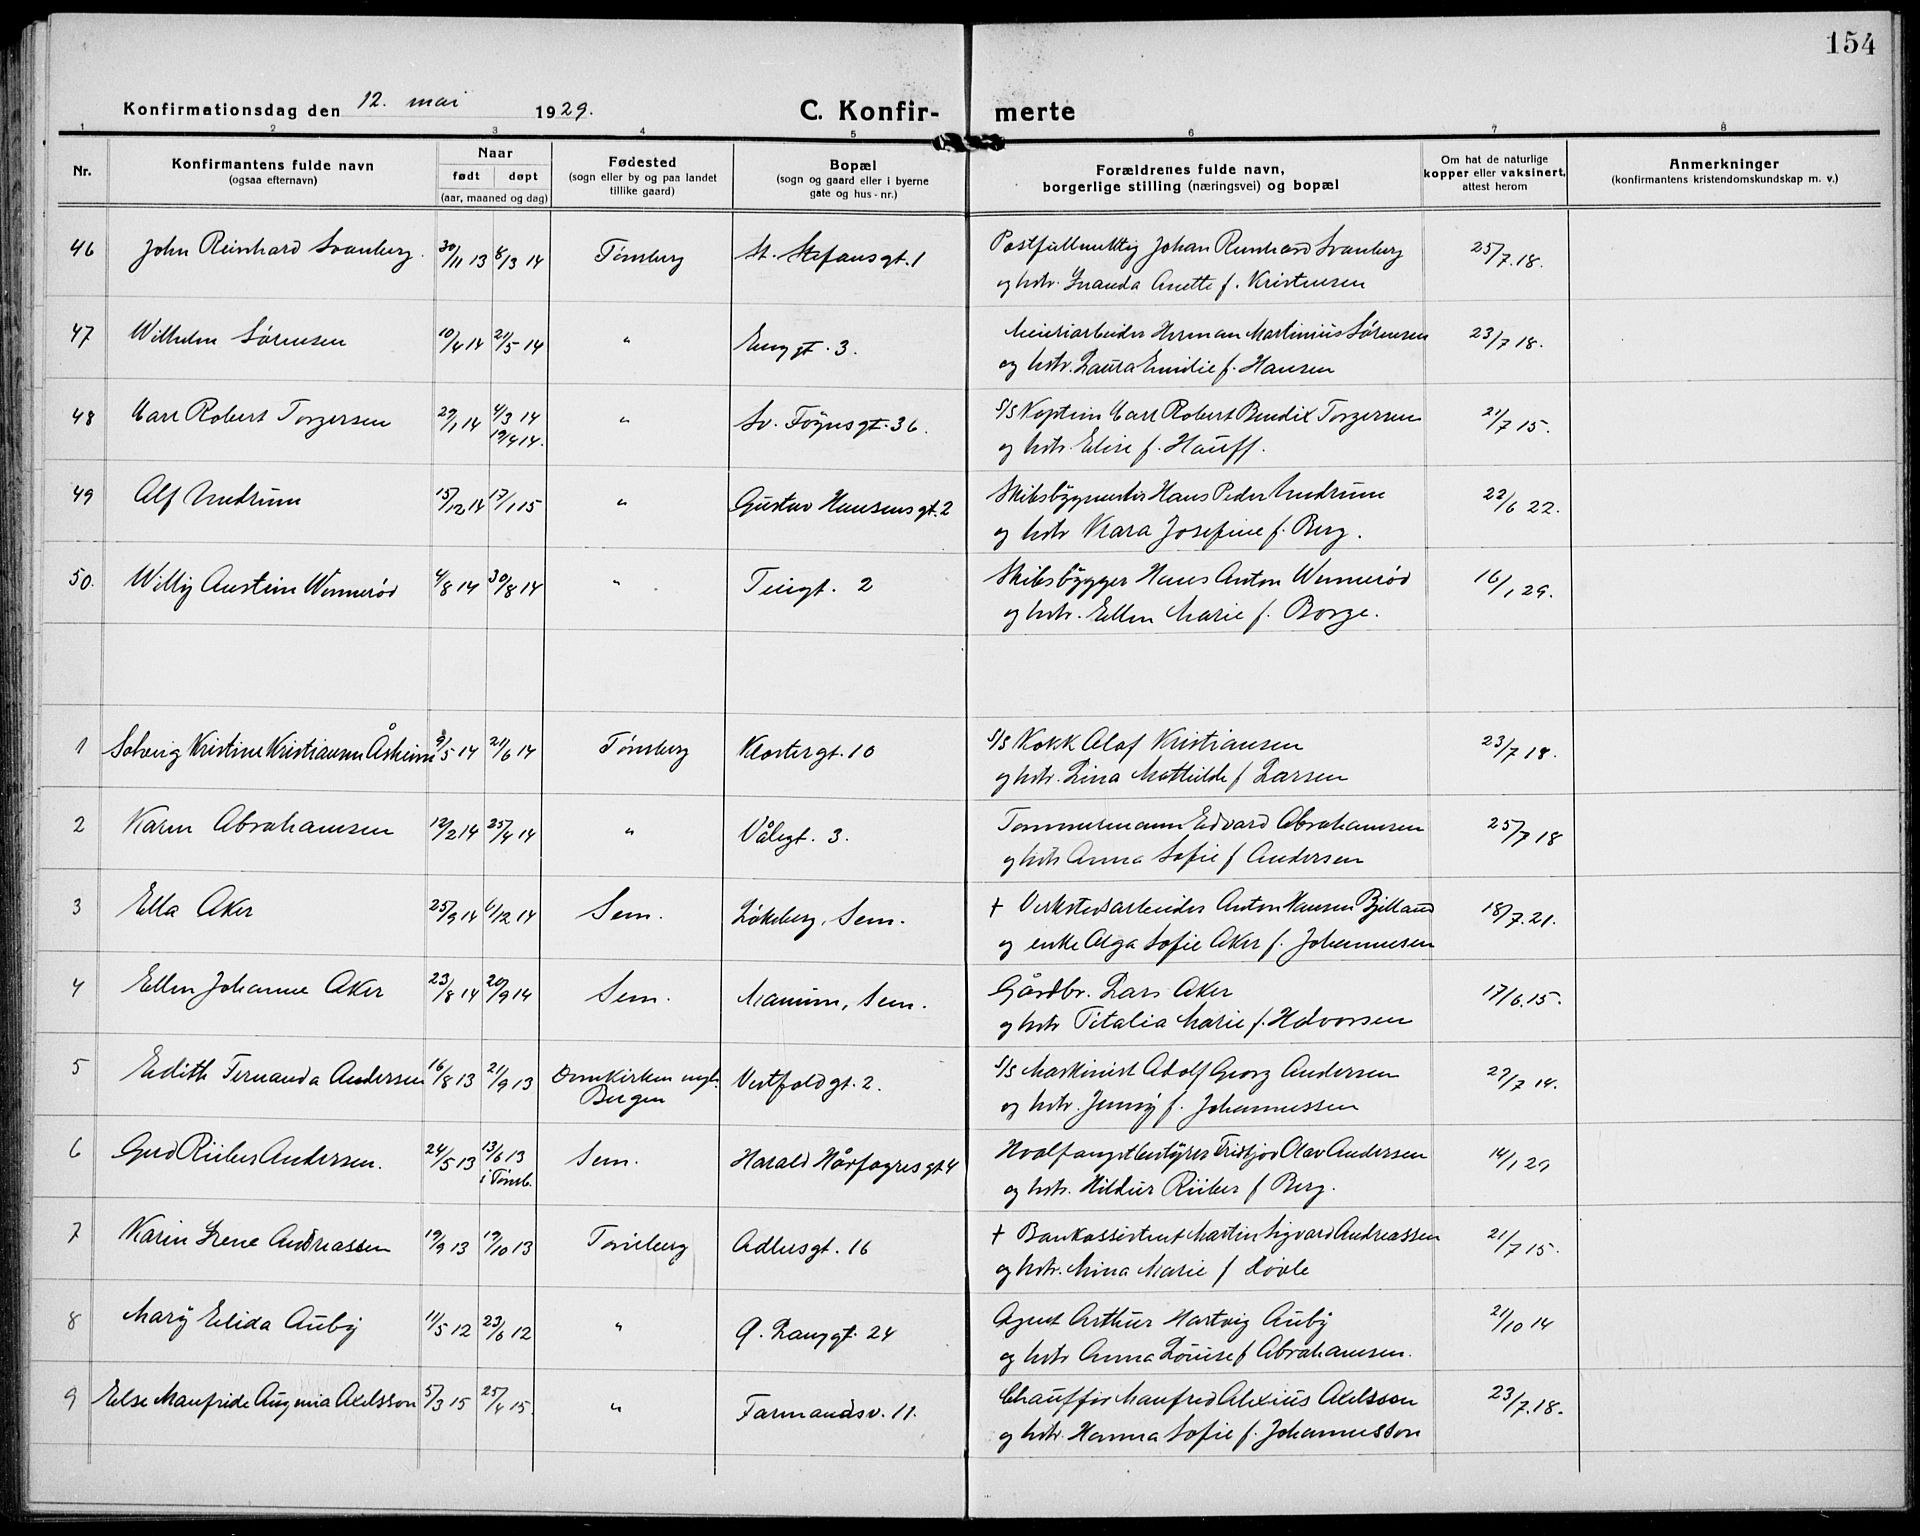 154
Konfirmationsdag den 12. mai 1929. C. Konfirmerte
1 2 3 4 5 6 7 8
Nr. Konfirmantens fulde navn (ogsaa efternavn) Naar født døpt (aar, maaned og dag) Fødested (sogn eller by og paa landet tillike gaard) Bopæl (sogn og gaard eller i byerne gate og hus-nr.) Forældrenes fulde navn, borgerlige stilling (næringsvei) og bopæl Om hat de naturlige kopper eller vaksinert, attest herom Anmerkninger (konfirmantens kristendomskundskap m. v.)
46 John Reinhard Svanberg. 30/11 13 8/3 14 Tønsberg St. Stefansgt. 1 Postfullmektig Johan Reinhard Svanberg 25/7.18.
og hstr. Ananda Anette f. Kristensen
47 Wilhelm Sørensen 10/4 14 21/5 14 " Enggt. 3. Meieriarbeider Herman Martinius Sørensen 23/7 18.
og hstr. Laura Emilie f. Hansen
48 Carl Robert Torgersen 29/1 14 4/3 14 " Sv. Føynsgt. 36. S/S Kaptein Carl Robert Bendix Torgersen 21/7 15.
19/4 14. og hstr. Elise f. Hauff.
49 Alf Undrum 15/12 14 17/1 15 " Gustav Hansens gt. 2 Skibsbygmester Hans Peder Undrum 22/6 22.
og hstr Klara Josefine f. Berg.
50. Willy Austein Wennerød 4/8 14 30/8 14 " Teiegt. 2 Skibsbygger Hans Anton Wennerød 16/1 29.
og hstr. Ellen Marie f. Borge.
1 Solveig Kristine Kristiansen Åsheim 9/5 14 21/6 14 Tønsberg Klostergt. 10 S/S Kokk Olaf Kristiansen 23/7 18.
og hstr. Lina Mathilde f Larsen
2 Karen Abrahamsen 12/2 14 25/4 14 " Vålegt. 3. Tømmermann Edvard Abrahamsen 25/7 18
og hstr Anna Sofie f Andersen
3 Ella Aker 25/9 14 6/12 14 Sem. Løkeberg, Sem. + Verkstedsarbeider Anton Hansen Bjelland 18/7.21.
og enke Olga Sofie Aker f. Johannesen
4 Ellen Johanne Aker 23/8 14 20/9 14 Sem. Manum, Sem. Gårdbr. Lars Aker 17/6.15.
og hstr Titalia Marie f. Halvorsen
5 Edith Fernanda Andersen 16/8 13 21/9 13 Domkirken Vestfoldgt. 2. S/S Maskinist Adolf Georg Andersen 29/7 14.
Bergen og hstr. Jenny f. Johannessen
6 Gerd Riiber Andersen. 24/5 13 13/6 13 Sem. Harald Hårfagres gt. 4 Hvalfangstbestyrer Fridtjov Olav Andersen 14/1 29
i Tønsb. og hstr. Hildur Riiber f Berg.
7 Karin Irene Andreassen 19/9 13 19/10 13 Tønsberg Adlersgt. 16 + Bankassistent Martin Sigvard Andreassen 21/7 15.
og hstr. Mina Marie f Løvle
8 Mary Elida Auby 11/5 12 23/6 12 " Q. Langgt. 24 Agent Arthur Hartvig Auby 21/10 14
og hstr Anna Louise f Abrahamsen.
9 Else Manfride Augenia Axelsson 5/3 15 25/4 15. " Farmandsv. 11. Chauffør Manfred Alexius Axelsson 23/7.18.
og hstr. Hanna Sofie f. Johannesson